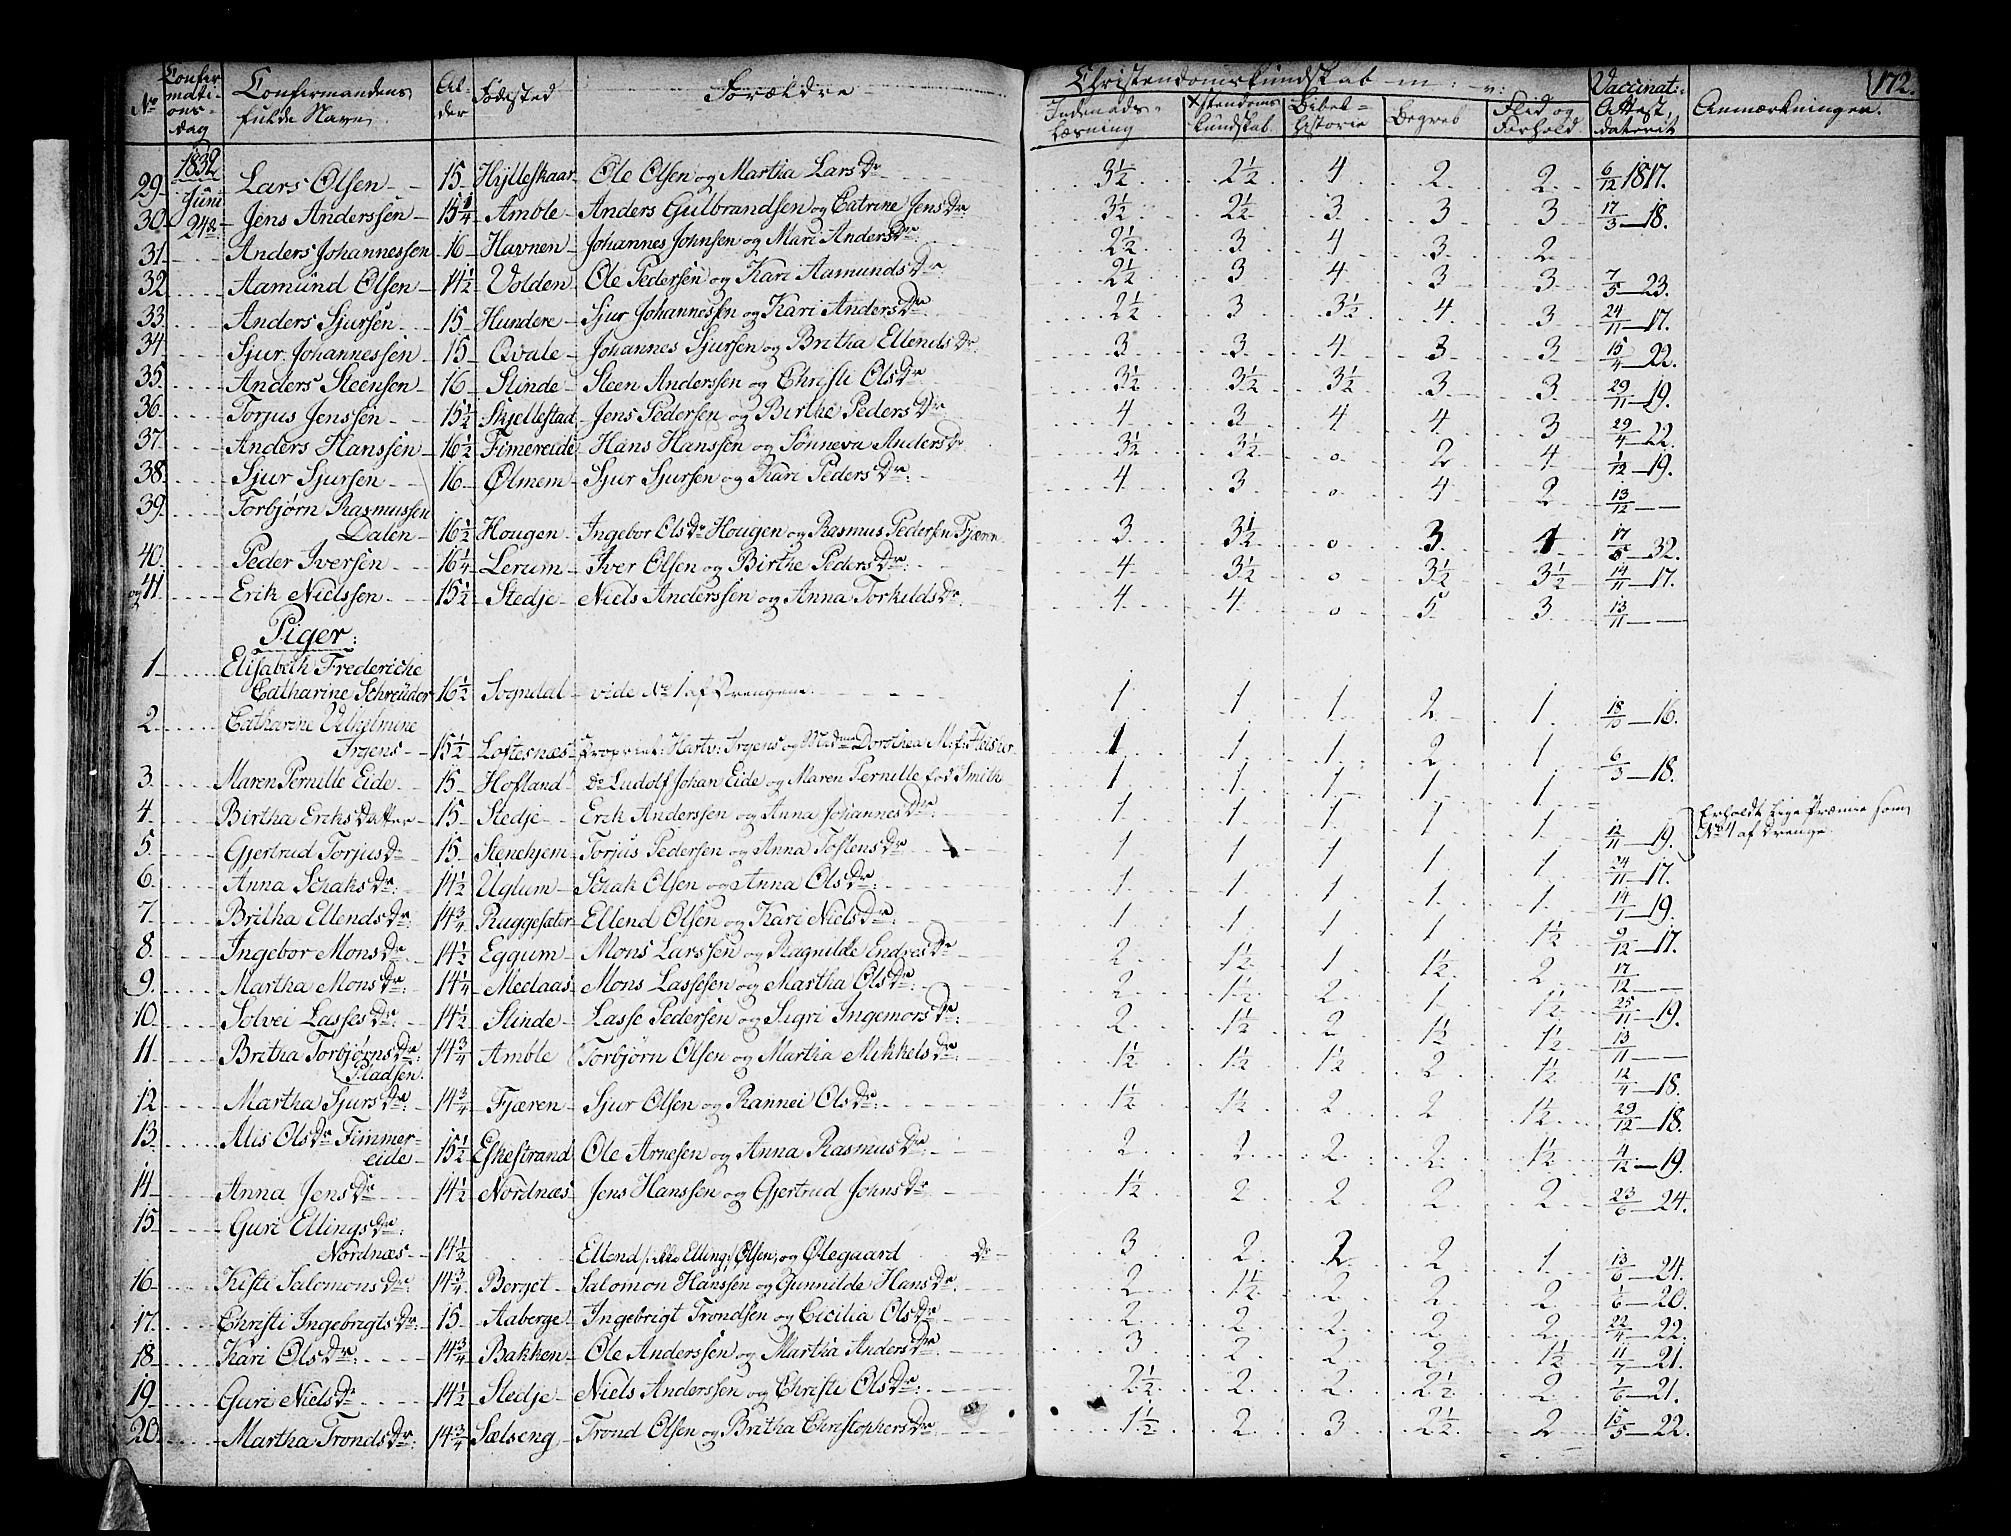 172.
No Confirmations-dag Confirmandens fulde Navn. Alder Fødested Forældre Christendomskundskab m: v: Vaccinat: Attest, dateret Anmærkninger.
Indenads-Læsning Xstendoms kundskab. Bibel-historie Begreb Flid og Forhold
29 1832 Juni 24de Lars Olsen 15 Hylleskaar Ole Olsen og Martha Lars Dr 3½ 2½ 4 2 2 6/12 1817.
30 Jens Anderssen 15¼ Amble Anders Gulbrandsen og Catrine Jens Dr 3½ 2½ 3 3 3 17/3 — 18.
31 Anders Johannessen 16 Havnen Johannes Johnsen og Mari Anders Dr 2½ 3 4 3 2
32 Aamund Olsen 14½ Volden Ole Pedersen og Kari Aamunds Dr 2½ 3 4 3 3 7/5 — 23.
33 Anders Sjursen 15 Hundere Sjur Johannessen og Kari Anders Dr 2½ 3 3½ 4 3 24/11 — 17.
34 Sjur Johannessen 15 Qvale Johannes Sjursen og Britha Ellends Dr 3 3 4 3 3 15/4 — 22.
35 Anders Steensen 16 Slinde Steen Anderssen og Christi Ols Dr 3½ 3½ 3½ 3 3 29/11 — 19.
36 Torjus Jenssen 15½ Skjellestad Jens Pedersen og Birthe Peders Dr 4 3 4 4 3 29/4 — 22.
37 Anders Hanssen 16½ Fimereide Hans Hanssen og Sønneva Anders Dr 3½ 3½ 0 2 4 1/12 — 19.
38 Sjur Sjursen 16 Ølmem Sjur Sjursen og Kari Peders Dr 4 3 0 4 2 13/12 — —
39 Torbjørn Rasmussen
Dalen 16½ Hougen Ingebor Ols Dr Hougen og Rasmus Pedersen Fjæren 3 3½ 0 3 4 17/5 — 32.
40 Peder Iversen 16¼ Lerum Iver Olsen og Birthe Peders Dr 4 3½ 0 3½ 3½ 14/11 — 17.
og 41 Erik Nielssen 15½ Stedje Niels Anderssen og Anna Torkilds Dr 4 4 0 5 3 13/11 — —
Piger:
1 Elisabeth Frederiche
Catharine Schreuder 16½ Sogndal vide No 1 af Drengene 1 1 1 2 1 18/10 — 16.
2 Catharine Vilhelmine
Irgens 15½ Loftesnæs Propriet: Hartv: Irgens og Mdme Dorothea M: f: Fleischer 1 1 1 2 1 6/3 — 18.
3 Maren Pernille Eide 15 Hofland Do Ludolf Johan Eide og Maren Pernille fød Smith 1 1 1 1 1
4 Birtha Eriks Datter 15 Stedje Erik Anderssen og Anna Johannes Dr 1 1 1 1 1 12/11 — 19. Erholdt lige Præmie som No 4 af Drenge
5 Gjertrud Torjus Dr 15 Stenehjem Torjus Pedersen og Anna Tostens Dr 1 1 1 1 1 24/11 — 17.
6 Anna Schaks Dr 14½ Uglum Schak Olsen og Anna Ols Dr 1 1 1 1 1 14/1 — 19.
7 Britha Ellends Dr 14¾ Ruggesæter Ellend Olsen og Kari Niels Dr 1 1 1 1 1½ 9/12 — 17.
8 Ingebor Mons Dr 14½ Eggum Mons Larssen og Ragnilde Endres Dr 2 1½ 1 1½ 2 17/12 — —
9 Martha Mons Dr 14¼ Medaas Mons Lassesen og Martha Ols Dr 2 1½ 2 1 1½ 25/11 — 19.
10 Solvei Lasses Dr 14½ Slinde Lasse Pedersen og Sigri Ingemors Dr 2 1½ 2 1½ 1½ 13/11 — —
11 Britha Torbjørns Dr 14¾ Amble Torbjørn Olsen og Martha Mikkels Dr 1½ 1½ 1½ 2 1½ 12/4 — 18.
Pladsen.
12 Martha Sjurs Dr 14¾ Fjæren Sjur Olsen og Rannei Ols Dr 1½ 1½ 2 2 1½ 29/12 — 18.
13 Alis Ols Dr Fimmer-
eide 15½ Eskestrand Ole Arnesen og Anna Rasmus Dr 2 2 2 2 1½ 4/12 — 19.
14 Anna Jens Dr 14½ Nordnæs Jens Hanssen og Gjertrud Johns Dr 1½ 2 2 2 2 23/6 — 24.
15 Guri Ellings Dr
Nordnæs 14½ Ellend /: ikke Elling :/ Olsen, og Ølegaard Dr 3 2 2 2 1 13/6 — 24.
16 Kisti Salomons Dr 14¾ Berget Salomon Hanssen og Gunnilde Hans Dr 2 1½ 2 2 2 1/6 — 20.
17 Christi Ingebrigts Dr 15 Aaberge Ingebrigt Trondsen og Cicilia Ols Dr 2 2 2 2 2 22/4 — 22.
18 Kari Ols Dr 14¾ Bakken Ole Anderssen og Martha Anders Dr 3 2 2 2 1½ 11/7 — 21.
19 Guri Niels Dr 14½ Stedje Niels Anderssen og Christi Ols Dr 2½ 2 2 2½ 2 1/6 — 21.
20 Martha Tronds Dr 14¾ Sælseng Trond Olsen og Britha Christophers Dr 1½ 2 3 2½ 2 15/5 — 22.